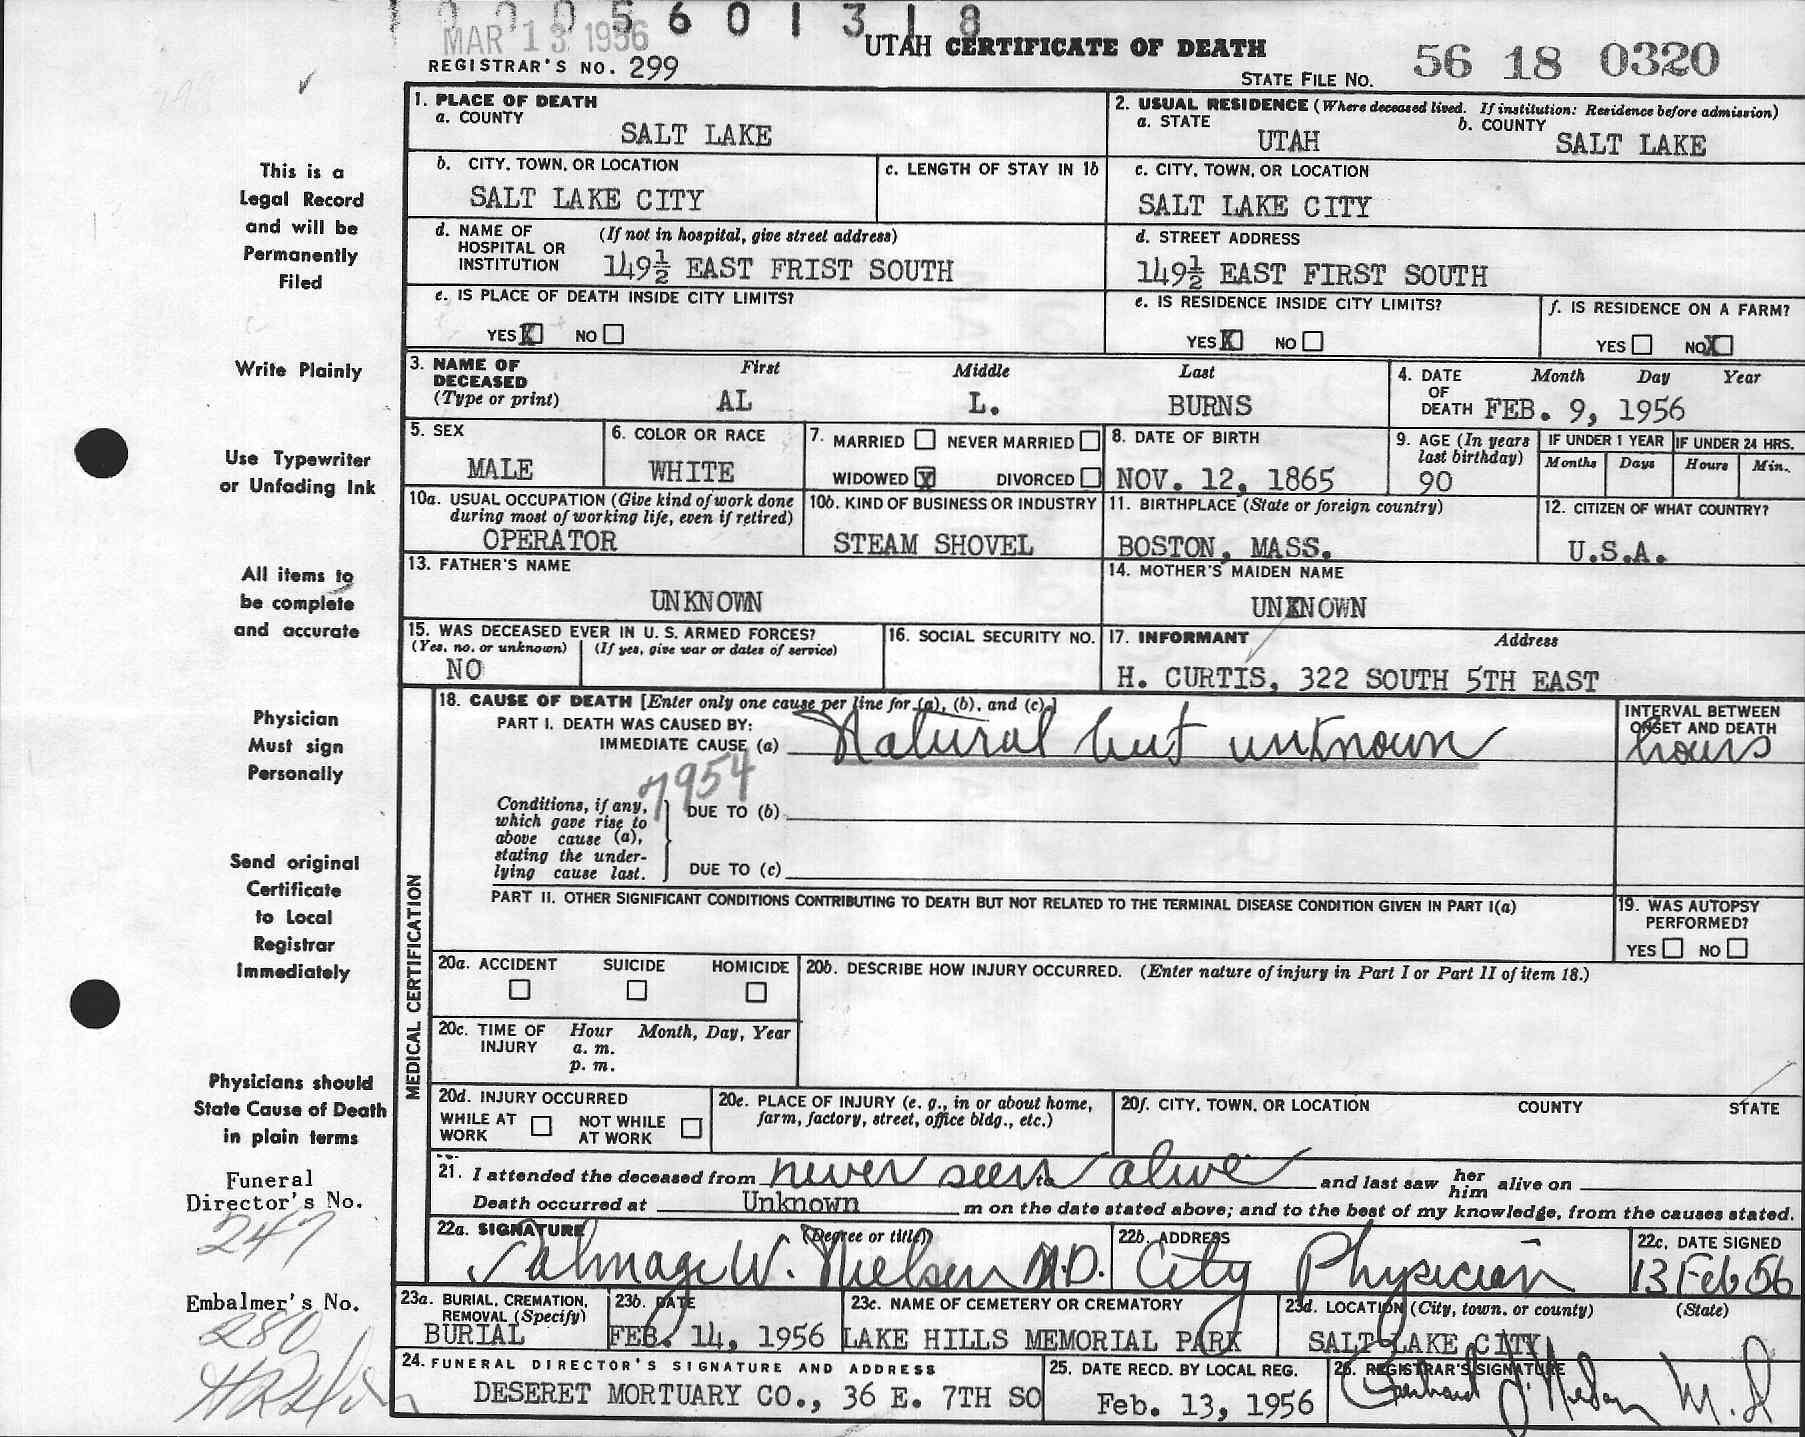 1 0 0 5 6 0 1 3 1 8
MAR 13 1956
UTAH CERTIFICATE OF DEATH
REGISTRAR'S NO. 299
STATE FILE NO. 56 18 0320
This is a
Legal Record
and will be
Permanently
Filed
Write Plainly
Use Typewriter
or Unfading Ink
All items to
be complete
and accurate
Physician
Must sign
Personally
Send original
Certificate
to Local
Registrar
Immediately
Physicians should
State Cause of Death
in plain terms
Funeral
Director's No.
247
Embalmer's No.
280
1. PLACE OF DEATH
a. COUNTY
SALT LAKE
2. USUAL RESIDENCE (Where deceased lived. If institution: Residence before admission)
a. STATE UTAH b. COUNTY SALT LAKE
b. CITY, TOWN, OR LOCATION
SALT LAKE CITY
c. LENGTH OF STAY IN 1b
c. CITY, TOWN, OR LOCATION
SALT LAKE CITY
d. NAME OF HOSPITAL OR INSTITUTION (If not in hospital, give street address)
149½ EAST FRIST SOUTH
d. STREET ADDRESS
149½ EAST FIRST SOUTH
e. IS PLACE OF DEATH INSIDE CITY LIMITS?
YES X NO
e. IS RESIDENCE INSIDE CITY LIMITS?
YES X NO
f. IS RESIDENCE ON A FARM?
YES NO X
3. NAME OF DECEASED (Type or print)
First Middle Last
AL L. BURNS
4. DATE OF DEATH Month Day Year
FEB. 9, 1956
5. SEX
MALE
6. COLOR OR RACE
WHITE
7. MARRIED NEVER MARRIED
WIDOWED X DIVORCED
8. DATE OF BIRTH
NOV. 12, 1865
9. AGE (In years last birthday)
90
IF UNDER 1 YEAR IF UNDER 24 HRS.
Months Days Hours Min.
10a. USUAL OCCUPATION (Give kind of work done during most of working life, even if retired)
OPERATOR
10b. KIND OF BUSINESS OR INDUSTRY
STEAM SHOVEL
11. BIRTHPLACE (State or foreign country)
BOSTON, MASS.
12. CITIZEN OF WHAT COUNTRY?
U.S.A.
13. FATHER'S NAME
UNKNOWN
14. MOTHER'S MAIDEN NAME
UNKNOWN
15. WAS DECEASED EVER IN U. S. ARMED FORCES?
(Yes, no, or unknown) (If yes, give war or dates of service)
NO
16. SOCIAL SECURITY NO.
17. INFORMANT Address
H. CURTIS, 322 SOUTH 5TH EAST
MEDICAL CERTIFICATION
18. CAUSE OF DEATH [Enter only one cause per line for (a), (b), and (c).]
PART I. DEATH WAS CAUSED BY:
IMMEDIATE CAUSE (a) Natural but unknown
INTERVAL BETWEEN ONSET AND DEATH
hours
7954
Conditions, if any, which gave rise to above cause (a), stating the underlying cause last.
DUE TO (b)
DUE TO (c)
PART II. OTHER SIGNIFICANT CONDITIONS CONTRIBUTING TO DEATH BUT NOT RELATED TO THE TERMINAL DISEASE CONDITION GIVEN IN PART I(a)
19. WAS AUTOPSY PERFORMED?
YES NO
20a. ACCIDENT SUICIDE HOMICIDE
20b. DESCRIBE HOW INJURY OCCURRED. (Enter nature of injury in Part I or Part II of item 18.)
20c. TIME OF INJURY Hour Month, Day, Year
a. m.
p. m.
20d. INJURY OCCURRED
WHILE AT WORK NOT WHILE AT WORK
20e. PLACE OF INJURY (e. g., in or about home, farm, factory, street, office bldg., etc.)
20f. CITY, TOWN, OR LOCATION COUNTY STATE
21. I attended the deceased from never seen to alive and last saw her him alive on
Death occurred at Unknown m on the date stated above; and to the best of my knowledge, from the causes stated.
22a. SIGNATURE (Degree or title)
Talmage W. Nielsen M.D.
22b. ADDRESS
City Physician
22c. DATE SIGNED
13 Feb 56
23a. BURIAL, CREMATION, REMOVAL (Specify)
BURIAL
23b. DATE
FEB. 14, 1956
23c. NAME OF CEMETERY OR CREMATORY
LAKE HILLS MEMORIAL PARK
23d. LOCATION (City, town, or county) (State)
SALT LAKE CITY
24. FUNERAL DIRECTOR'S SIGNATURE AND ADDRESS
DESERET MORTUARY CO., 36 E. 7TH SO
25. DATE RECD. BY LOCAL REG.
Feb. 13, 1956
26. REGISTRAR'S SIGNATURE
M. D.